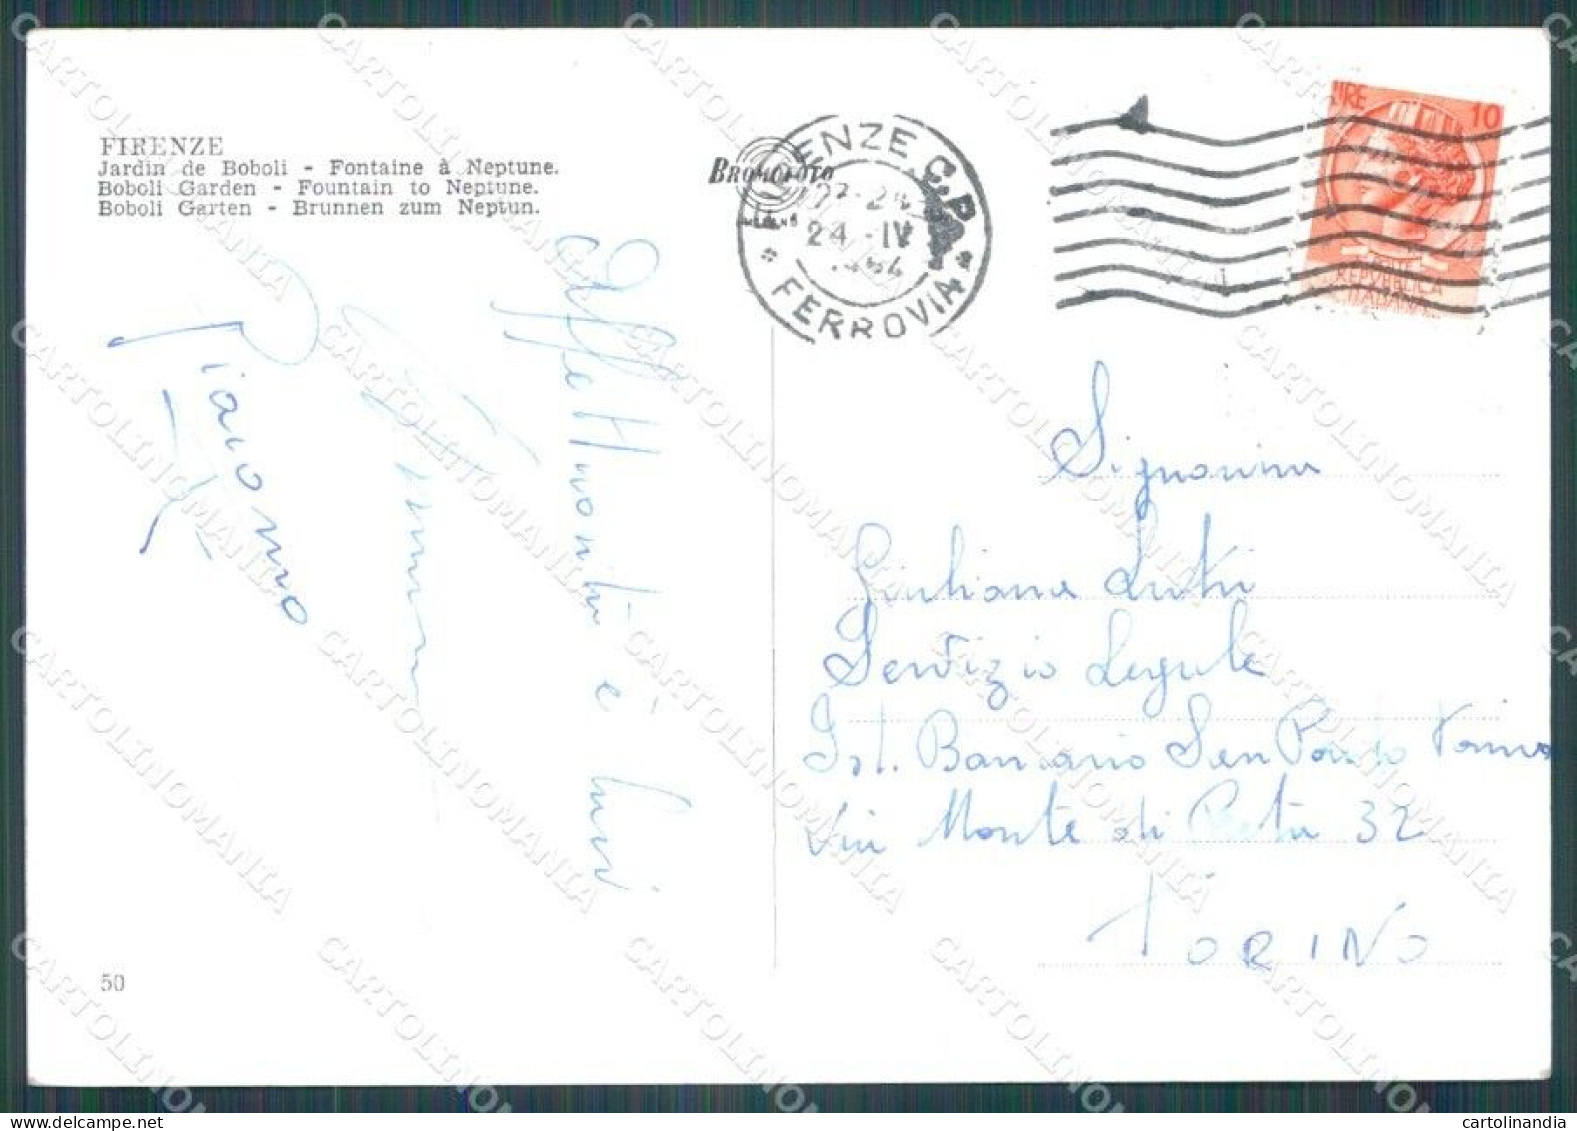 FIRENZE
Jardin de Boboli - Fontaine à Neptune.
Boboli Garden - Fountain to Neptune.
Boboli Garten - Brunnen zum Neptun.
BROMOFOTO
FIRENZE C.P.
24 -IV
* FERROVIA *
LIRE 10
REPUBBLICA
ITALIANA
Affettuosità e
Signorina
Giuliana
Servizio Legale
Ist. Bancario San Paolo Torino
Via Monte di Pietà 32
TORINO
50
CARTOLINOMANIA
cartolinandia